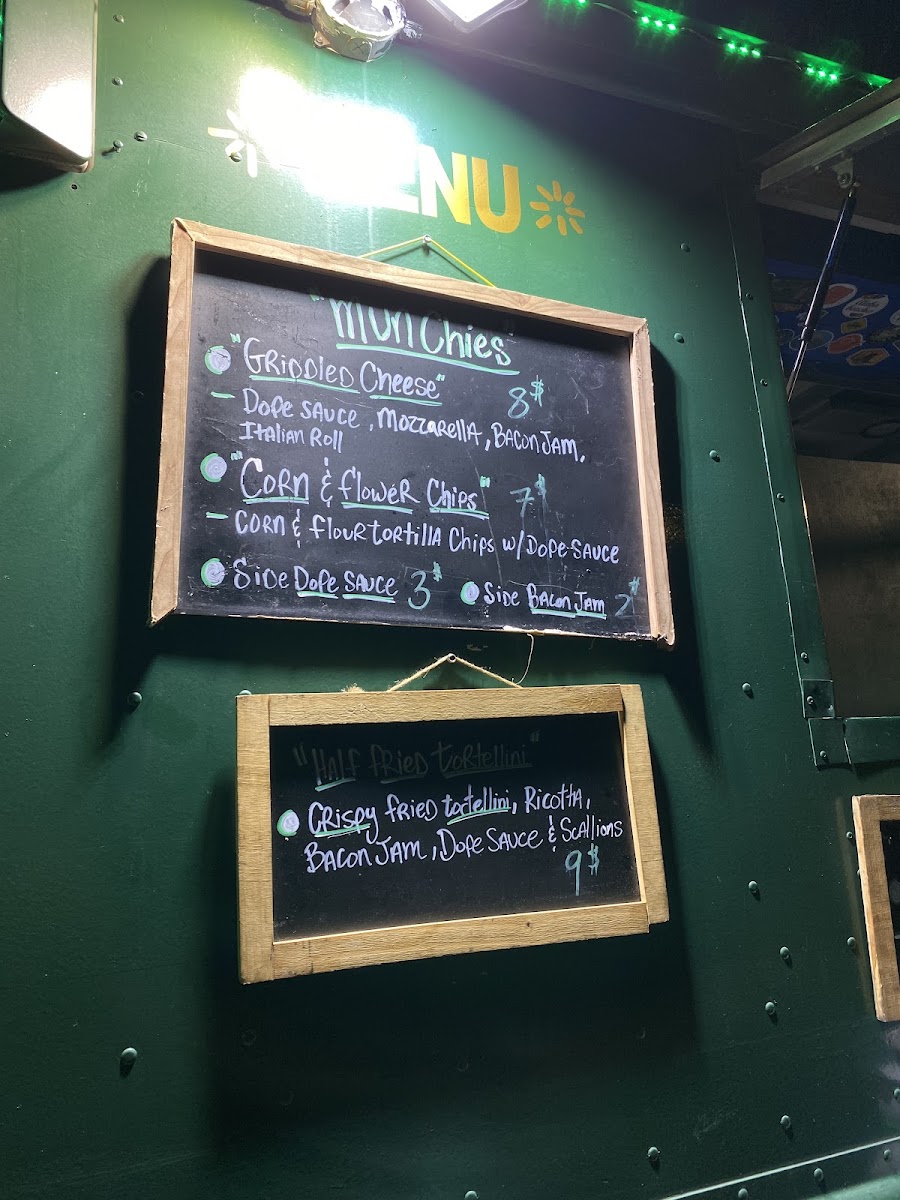 MENU
"Munchies"
"Griddled Cheese" 8$
- Dope Sauce, Mozzarella, Bacon Jam,
Italian Roll
"Corn & Flower Chips" 7$
- Corn & Flour tortilla Chips w/ Dope-Sauce
Side Dope Sauce 3$ Side Bacon Jam 2$
"Half Fried tortellini"
Crispy Fried tortellini, Ricotta,
Bacon Jam, Dope Sauce & Scallions
9$